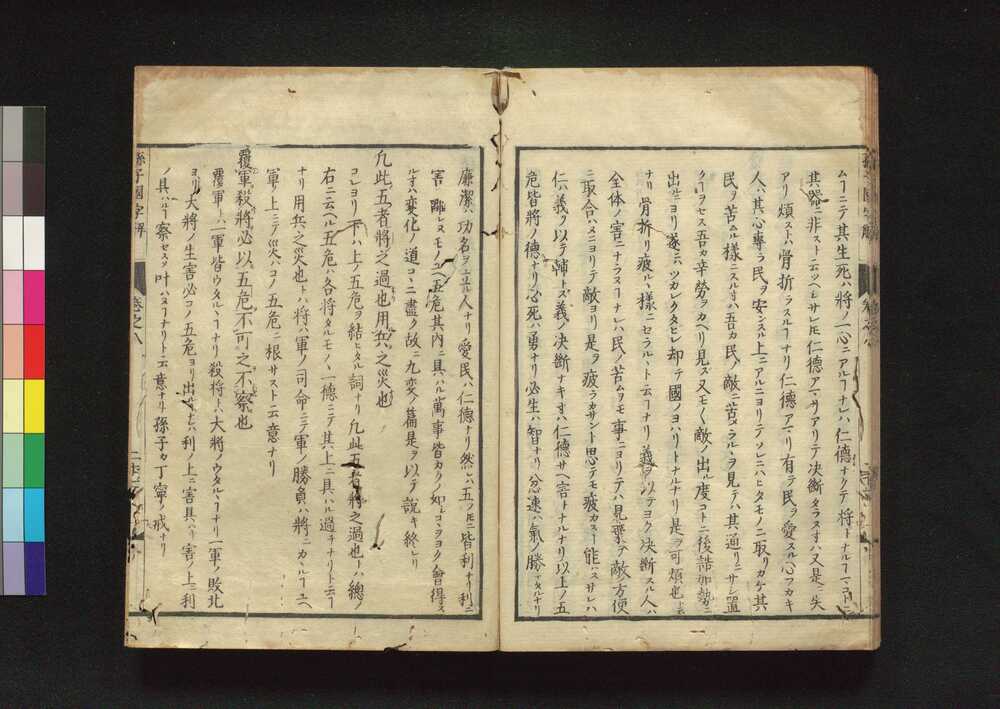 ムーニテ其生死ハ将ノ一心ニアルヿナレハ仁德ナクテ将トナルヿ
其器ニ非スト云ツヘシサレ𪜈仁德アマリアリテ决斷タラスハ又是ニ失
アリ煩ストハ骨折ラスルヿナリ仁德アマリ有テ民ヲ愛スル心フカキ
人ハ其心專ラ民ヲ安ンスル上ニアルニヨリテソレニハヒタモノニ取リカケ其
民ヲ苦ムル樣ニスル𪜈吾カ民ノ敵ニ苦メラルヽヲ見テハ其通リニサシ置
クヿヲセス吾カ辛勞ヲカヘリ見ス又モ敵ノ出ル度コトニ後詰加勢ニ
出ルニヨリ遂ニハツカレクタヒレ却テ國ノヨハリトナルナリ是ヲ可煩也ト云
ナリ骨折リ疲ルヽ樣ニセラルヽト云フヿナリ義ヲ以テヨク决斷スル人ハ
全体ノ害ニナラヌヿナレハ民ノ苦ムヲモ事ニヨリテハ見棄テ敵方便
ニ取合ハヌニヨリテ敵ヨリ是ヲ疲ラカサント思テモ疲カスヿ能ハスサレハ
仁ハ義ヲ以テ輔トス義ノ决斷ナキ𪜈ハ仁德サヘ害トナルナリ以上ノ五
危皆將ノ德ナリ必死ハ勇ナリ必生ハ智ナリ忿速ハ氣ノ勝タルナリ
廉潔ハ功名ヲ立ル人ナリ愛民ハ仁德ナリ然レハ五ツ𪜈ニ皆利ナリ利ニ
害離レヌモノユヘ五危其内ニ具ハル萬事皆カクノ如シコヽヲヨク會得ス
ル𪜈ハ変化ノ道コヽニ盡ク故ニ九変ノ篇是ヲ以テ說キ終レリ
凢此五者將之過也用兵之災也
コレヨリ下ハ上ノ五危ヲ結ヒタル詞ナリ凢此五者將之過也トハ總ノ
右ニ云ヘル五危ハ各将タルモノヽ一德ニテ其上ニ具ハル過チナリト云ヿ
ナリ用兵之災也トハ将ハ軍ノ司命ニテ軍ノ勝負ハ將ニカヽルヿユヘ
軍ノ上ニテ災ハコノ五危ニ根サスト云意ナリ
覆軍殺將必以五危不可之不察也
覆軍トハ一軍皆ウタルヽヿナリ殺將トハ大將ノウタルヽヿナリ一軍ノ敗北
ヨリ大將ノ生害必コノ五危ヨリ出ルナレハ利ノ上ニ害具ハリ害ノ上ニ利
ノ具ハルヿ察セスンハ叶ハヌヿナリト云意ナリ孫子カ丁寧ノ戒ナリ
孫子國字解
卷之八